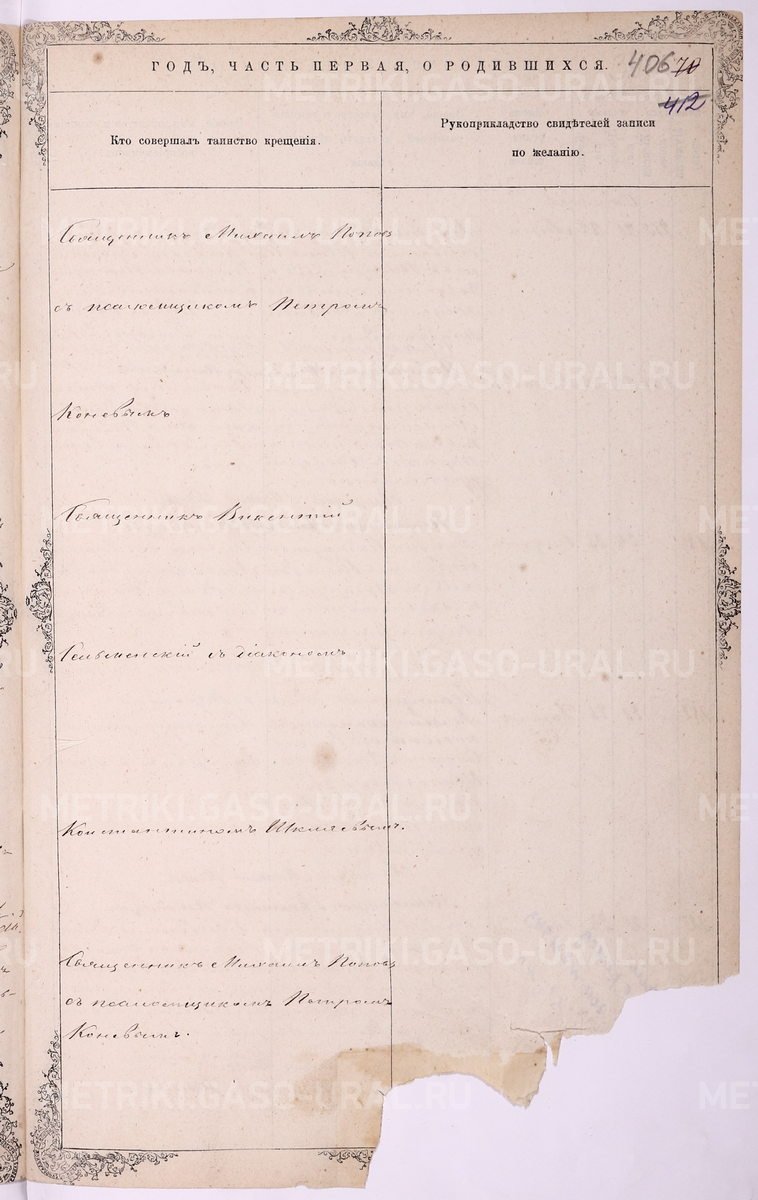 ГОДЪ, ЧАСТЬ ПЕРВАЯ, О РОДИВШИХСЯ. 406 70
412
Кто совершалъ таинство крещенія.
Рукоприкладство свидѣтелей записи
по желанію.
Священникъ Михаилъ Поповъ
съ псаломщикомъ Петромъ
Коневымъ
Священникъ Викентій
Сельменскій съ діакономъ
Константиномъ
Священникъ Михаилъ Поповъ
съ псаломщикомъ Петромъ
Коневымъ.
METRIKI.GASO-URAL.RU